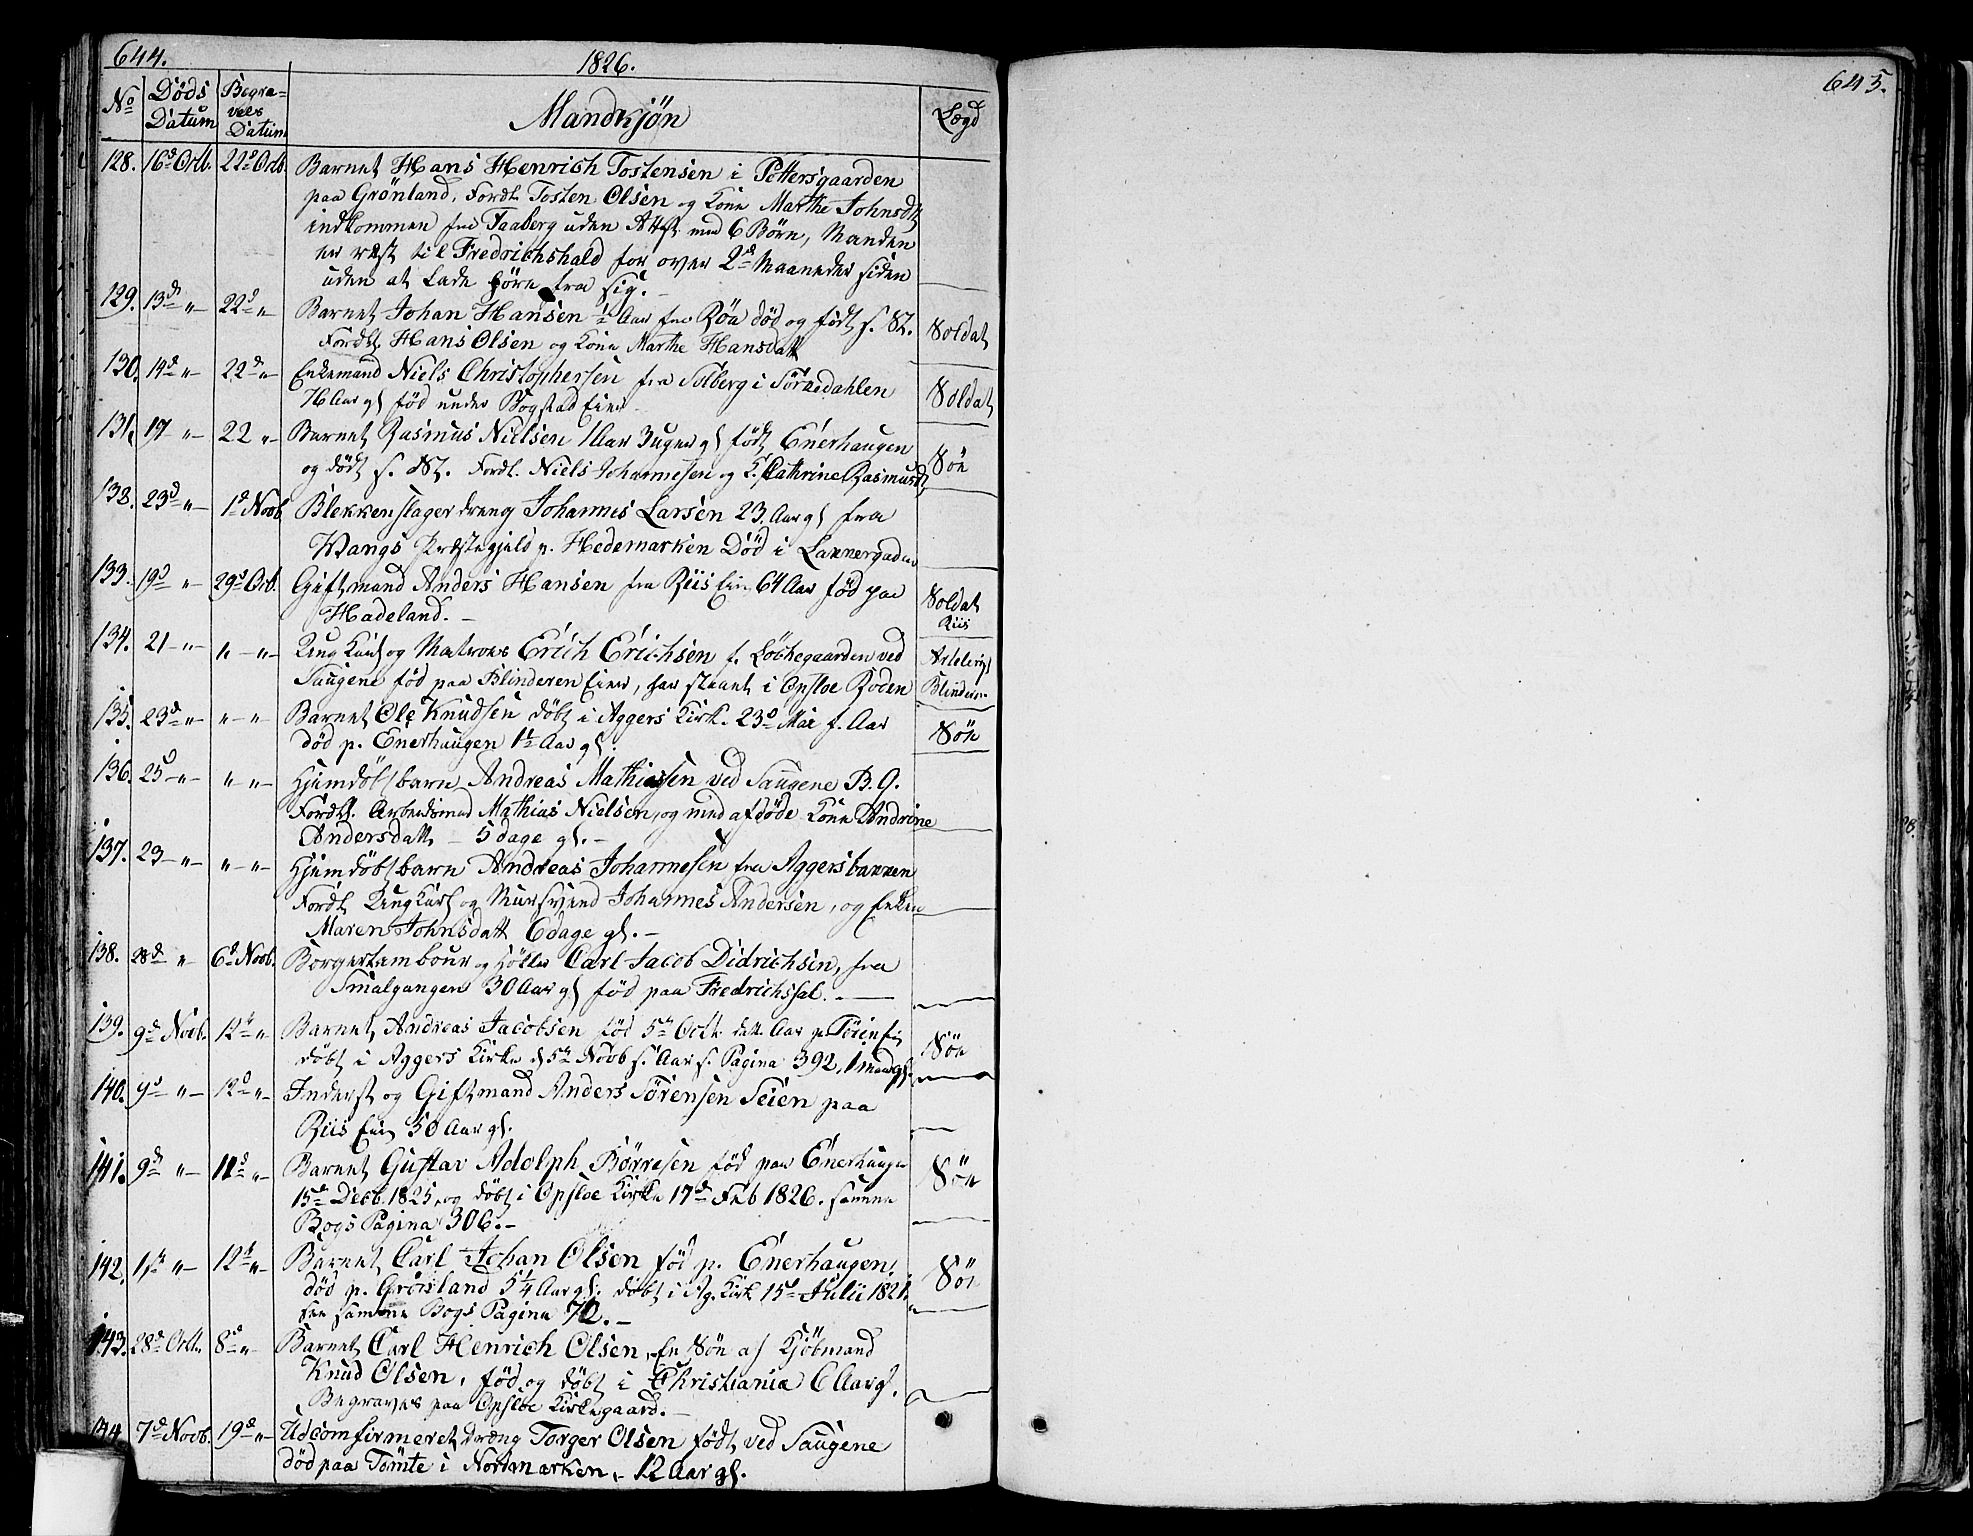 644.
1826.
No Døds Datum Begravels Datum Mandkjøn Lægd
128. 16d Octb. 22d Octb. Barnet Hans Henrich Tostensen i Pettersgaarden
paa Grönland, Forældr. Tosten Olsen og Kone Marthe Johnsdt,
indkommen fra Faaberg uden Attest med 6 Börn, Manden
er reist til Fredrichshald for over 2de Maaneder siden
uden at lade höre fra sig.
129. 13d " 22d " Barnet Johan Hansen ½ Aar fra Röa död og födt s. St. Soldat
Fordt. Hans Olsen og Kone Marthe Hansdatt
130. 14d " 22d " Enkemand Niels Christophersen fra Solberg i Sörkedahlen Soldat
76 Aar gl född under Bogstad Eier
131. 17 " 22 " Barnet Rasmus Nielsen 1 Aar 3 uger gl födt Enerhaugen Sön
og dödt s. St. Fordt. Niels Johannesen og K. Cathrine Rasmusdt
132. 23d " 1d Novb Blekkenslager dreng Johannes Larsen 23 Aar gl fra
Wangs Præstegjeld p. Hedemarken Död i Lakkergaden
133. 19d " 29d Octb. Giftmand Anders Hansen fra Riis Eier 64 Aar föd paa Soldat Riis
Hadeland.
134. 21 " " " Ungkarl og Matros Erich Erichsen f. Löchegaarden ved
Saugene föd paa Blinderen Eier, har staaet i Opsloe Roden Blindern
135. 23d " " " Barnet Ole Knudsen döbt i Aggers Kirk. 23d Mai f. Aar Sön
död p. Enerhaugen 1½ Aar gl.
136. 25d " " " Hjemdöbt barn Andreas Mathiassen ved Saugene B. G.
Fordt. Arbeidsmand Mathias Nielsen, og med afdöde Kone Andrine
Andersdatt 5 dage gl.
137. 23 " " " Hjemdöbt barn Andreas Johannesen fra Aggersbakken
Fordt. Ungkarl og Mursvend Johannes Andersen, og Enken
Maren Johnsdatt 6 dage gl.
138. 28d " 6d Novb. Borgertambour og Höker Carl Jacob Didrichsen, fra
Smalgangen 30 Aar gl föd paa Fredrichshal.
139. 9d Novb. 12d " Barnet Andreas Jacobsen föd 5te Octb. dette Aar p. Töien Ei Sön
döbt i Aggers Kirke d 5te Novb s. Aar s. Pagina 392, 1 Maan gl.
140. 9d " 12d " Inderst og Giftmand Anders Sörensen Seien paa
Riis Eier 50 Aar gl.
141. 9d " 11d " Barnet Gustav Adolph Börresen föd paa Enerhaugen Sön
15de Decb. 1825, og döbt i Opsloe Kirke 17de Feb 1826. samme
Bogs Pagina 306.
142. 1ste " 12d " Barnet Carl Johan Olsen föd p. Enerhaugen, Sön
död p. Grönland 5¼ Aar gl. döbt i Ag. Kirk 15d Julii 1821.
see samme Bogs Pagina 70.
143. 28d Octb. 8d " Barnet Carl Henrich Olsen, En Sön af Kjöbmand
Knud Olsen, föd og döbt i Christiania 6 Aar gl.
Begraves paa Opsloe Kirkegaard.
144. 7d Novb. 19d " Uconfirmeret dreng Torger Olsen födt ved Saugene
död paa Tömte i Normarken, 12 Aar gl.
645.